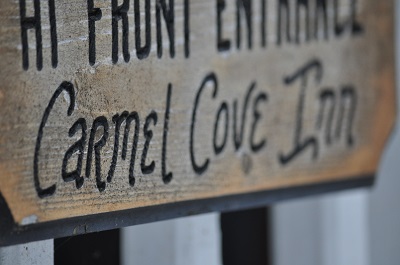 HI FRONT ENTRANCE
Carmel Cove Inn